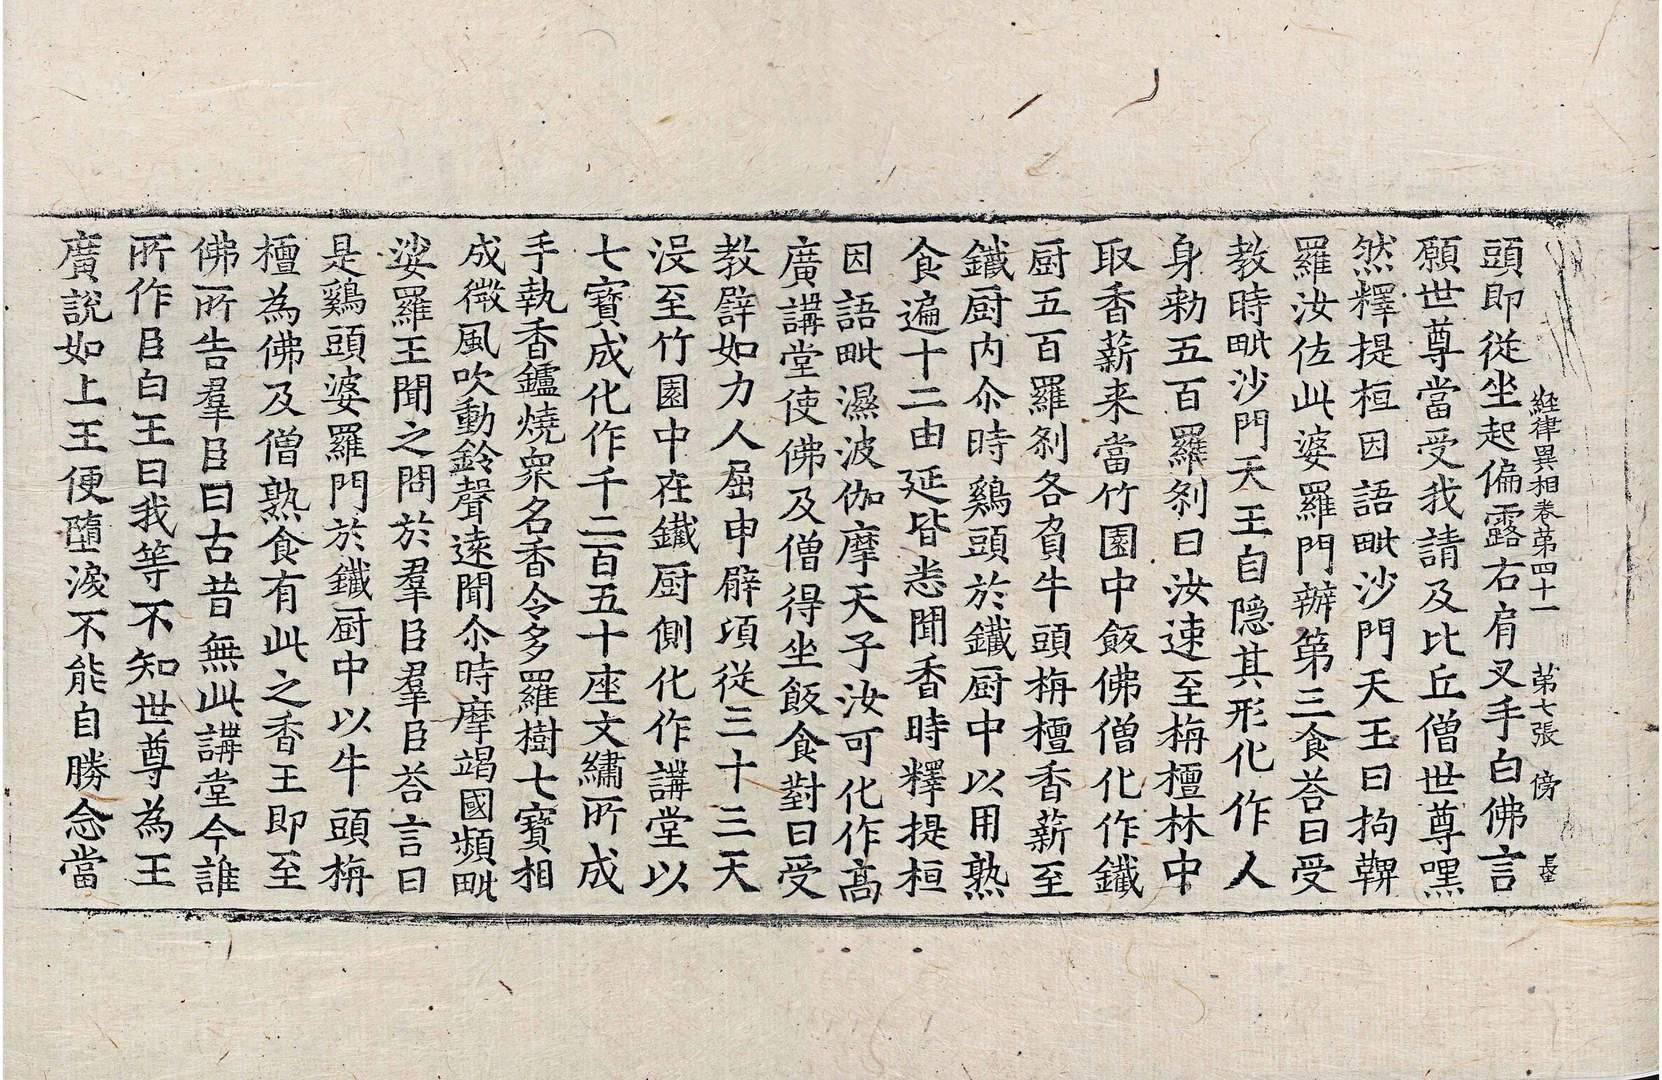 経律異相卷第四十一 第七張 傍
頭即從坐起偏露右肩叉手白佛言
願世尊當受我請及比丘僧世尊嘿
然釋提桓因語毗沙門天王曰拘鞞
羅汝佐此婆羅門辦第三食荅曰受
教時毗沙門天王自隱其形化作人
身勑五百羅剎曰汝速至栴檀林中
取香薪来當竹園中飯佛僧化作鐵
厨五百羅剎各負牛頭栴檀香薪至
鐵厨内尒時鷄頭於鐵厨中以用熟
食遍十二由延皆悉聞香時釋提桓
因語毗濕波伽摩天子汝可化作高
廣講堂使佛及僧得坐飯食對曰受
教譬如力人屈申臂頃從三十三天
没至竹園中在鐵厨側化作講堂以
七寳成化作千二百五十座文繡所成
手執香鑪燒衆名香令多羅樹七寳相
成微風吹動鈴聲遠聞尒時摩竭國頻毗
娑羅王聞之問於羣臣羣臣荅言曰
是鷄頭婆羅門於鐵厨中以牛頭栴
檀為佛及僧熟食有此之香王即至
佛所告羣臣曰古昔無此講堂今誰
所作臣白王曰我等不知世尊為王
廣說如上王便墮淚不能自勝念當